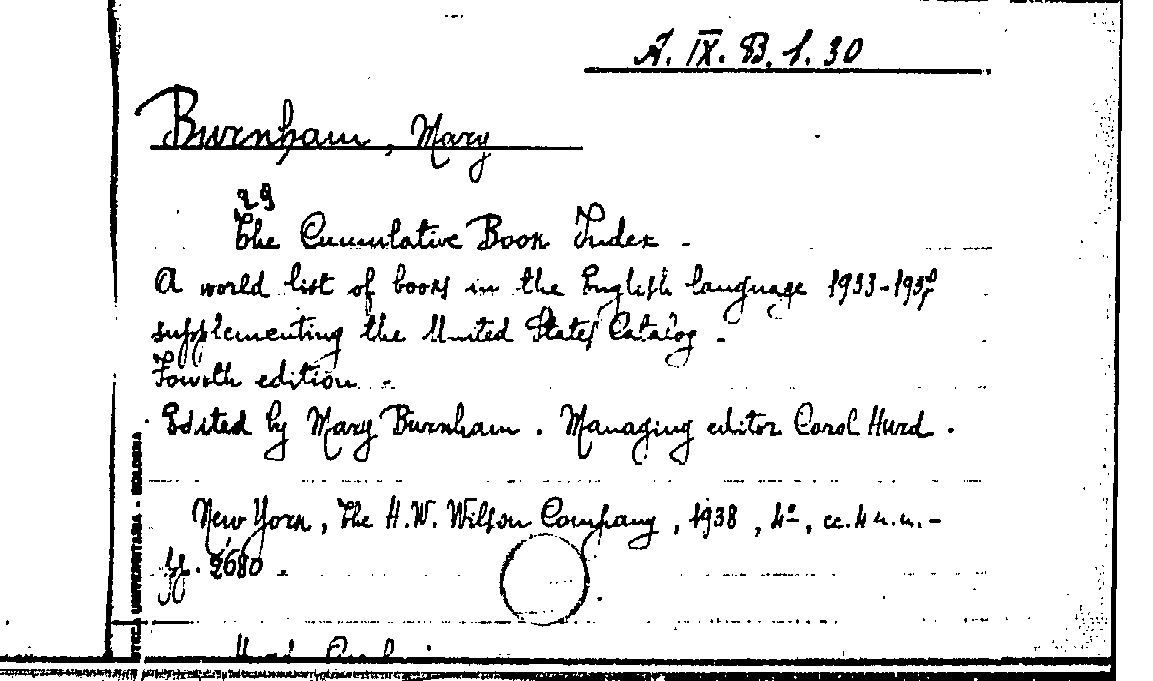 A. IX. B. 1. 30
Burnham, Mary
29
The Cumulative Book Index -
A world list of books in the English language 1933-193
supplementing the United States Catalog -
Fourth edition -
Edited by Mary Burnham. Managing editor Carol Hurd.
New York, The H.W. Wilson Company, 1938, 4º, cc. 4 n.n. -
pp. 2680 -
Hurd, Carol
TECA UNIVERSITARIA - BOLOGNA